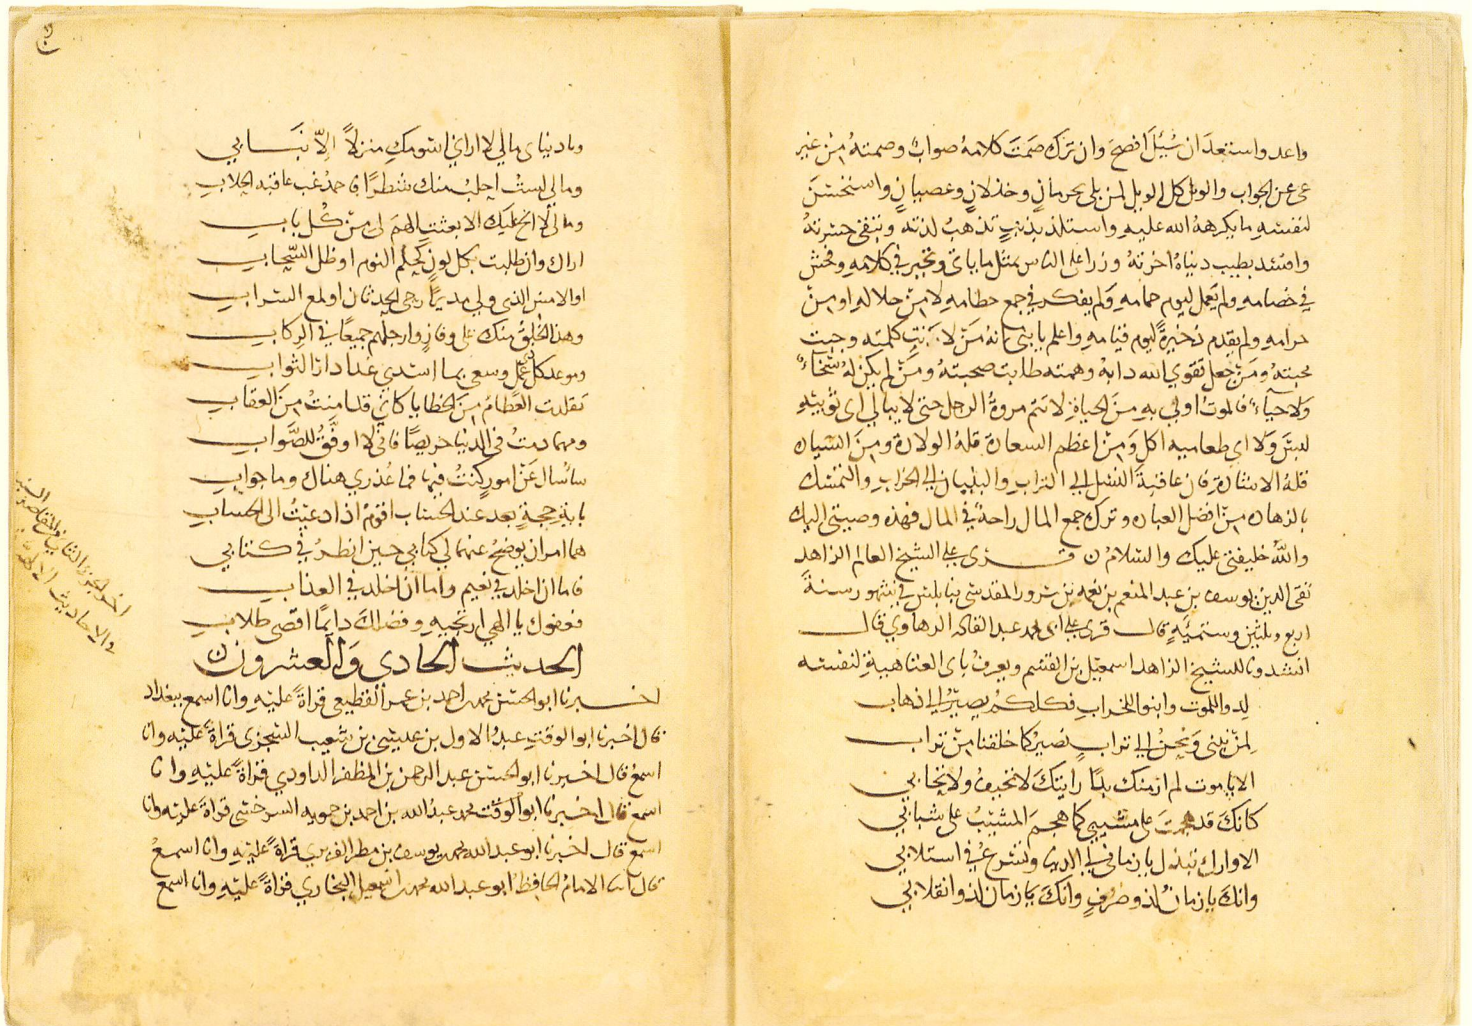 واعد واستعد ان سُئِلَ افصح وان ترك صَمَتَ كلامهُ صوابٌ وصمتهُ مِنْ غير
عي عن الجواب والويل كل الويل لمن بلي بحرمانٍ وخذلانٍ وعصيانٍ واستحسنَ
لنفسهِ ما يكرههُ الله عليهِ واستلذ بذنبٍ تذهبُ لذته وتبقى حسرتهُ
بطيب دنياهُ اخرتهُ وزرا على الناس بمثل ما ياتي وتجبر في كلامهِ وفحش
في خصامهِ ولم يَعمل ليوم حمامهِ وَلم يفكر في جمع حطامهِ لا مِنْ حلالهِ او مِنْ
حرامهِ ولم يقدم ذخيرةً ليوم قيامهِ واعلم يا بني انهُ مَنْ لانت كلمته وجبت
محبتهُ ومَنْ جعل تقوي الله دابهُ وهمته طابت صحبتهُ ومَنْ لم يكن لهُ سَخاءٌ
وَلا حياءٌ فالموتُ اولي بهِ مِنَ الحياةِ لا تتم مروةُ الرجل حتى لا يبالي اي ثوبيهِ
لبسَ وَلا اي طعاميه اكل وَمِنْ اعظم السعادة قلةُ الولادة ومِنَ السياده
قلةُ فان عاقبةَ النسل الي التراب والبنيان الي الخراب والتمسك
بالزهاده مِنْ افضل العباده وترك جمع المال راحةٌ في المال فهذه وصيتي اليك
واللهُ خليفتي عليك والسّلامُ ن قُرِي على الشيخ العالم الزاهد
تقي الدين يوسف بن عبد المنعم بن نعمه بن سرور المقدسي بنابلس في شهور سنةَ
اربع وثلثين وستمئةٍ قال قري على ابي محمد عبد القادر الرهاوي قال
انشدونا للشيخ الزاهد اسمعيل بن القسم ويعرفُ بابي العتاهيةِ لنفسه
لِدوا للموت وابنوا للخراب فكلكُم يصيرُ الي ذهاب
لِمَنْ نبني وَنحنُ الي ترابٍ نصيرُ كما خلقنا مِنْ تراب
الا يا موت لم ار منك بدًا رايتكَ لا تحيفُ ولا تحابي
كانكَ قد هجمتَ على مشيبي كما هجمَ المشيبُ على شبابي
الا واراك تبذل يا زماني لي الدنيا وتسرعُ في استلابي
وانك يا زمانُ لذو صروفٍ وانكَ يا زمان لذو انقلابي
وما دنياي مالي لا اراني اسومكِ منزلاً اِلاّ نبَابي
ومالي لستُ احلبُ منك شطرًا فاحمدُ غب عاقبه الحلابِ
ومالي لا الحُ عليك الا بعثتِ الهمَ لي مِنْ كُل بابِ
اراكِ وان طلبت بكل لونٍ كحلم النوم او ظل السَّحابِ
او الامسِ الذي ولي او لمع السرابِ
وهذا الخلقُ منك على وفازٍ وارجلهم جميعًا في الركابِ
وموعد كل ذي عمل وسعي بما اسدي غدا دارُ الثوابِ
تقلدت العظامُ مِنَ الخطايا كاني قد امنتُ مِنَ العقابِ
ومهما دمتُ في الدنيا حريصًا فاني لا اوفَّقُ للصَّوابِ
ساُسال عَنْ امورٍ كنتُ فيها فما عُذري هناك وما جوابِ
باية حجةٍ بعد عند الحساب اقومُ اذا دعيتُ الى الحسابِ
هما امران يوضحُ عنهما لي كتابي حين انظرُ في كتابي
فاما ان اخلد في نعيم واما ان اخلد في العذابِ
فعفوك يا الهي ارتجيهِ وفضلكَ دايمًا اقصى طلابِ
الحديث الحادي وَالعشرون
اخبرنا ابو الحسن محمد بن احمد بن عمر القطيعي قراةً عليهِ وانا اسمع ببغداد
قال اخبرنا ابو الوقتِ عبدُ الاول بن عيسي بن شعيب السجزي قراةً عليه وانا
اسمعُ قال اخبرنا ابو الحسن عبد الرحمن بن المظفر الداودي قراةً عليهِ وانا
اسمع قال اخبرنا ابو الوقت محمد عبدُ الله بن احمد بن حمويه السرخسي قراةً عليه وانا
اسمع قال اخبرنا ابو عبد الله محمد بن يوسف بن مطر الفربري قراةً عليهِ وانا اسمعُ
قال انا الامامُ الحافظ ابو عبد الله محمد بن اسمعيل البخاري قراةً عليهِ وانا اسمع
اخر الجزء الثاني
والاحاديث